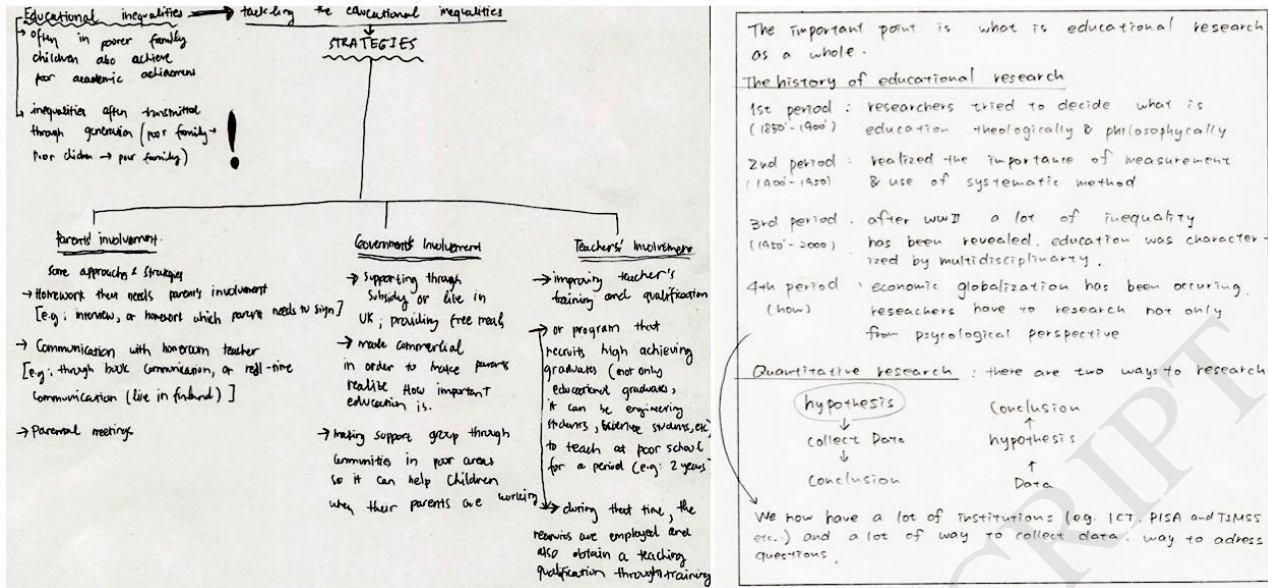 Educational inequalities → tackling the educational inequalities
STRATEGIES
→ Often in poorer family
children also achieve
poor academic achievement
→ inequalities often transmitted
through generation (poor family →
poor children → poor family)
!
Parents' involvement
Some approaches & strategies
→ Homework then needs parent's involvement
[e.g: interview, or homework which parent needs to sign]
→ Communication with homeroom teacher
[e.g: through book communication, or real-time
communication (like in finland)]
→ Parental meetings
Government's Involvement
→ Supporting through
Subsidy or like in
UK; providing free meals
→ made commercial
in order to make parents
realize How important
education is.
→ making support group through
communities in poor areas
so it can help children
when their parents are working
Teachers' Involvement
→ improving teacher's
training and qualification
→ or program that
recruits high achieving
graduates (not only
educational graduates,
it can be engineering
students, science students, etc)
to teach at poor school
for a period (e.g: 2 years)
→ during that time, the
recruits are employed and
also obtain a teaching
qualification through training
The important point is what is educational research
as a whole.
The history of educational research
1st period : researchers tried to decide what is
(1850'-1900') education theologically & philosophycally
2nd period : realized the importance of measurement
(1900'-1950) & use of systematic method
3rd period . after WWII a lot of inequality
(1950'-2000) has been revealed. education was character-
ized by multidisciplinarty.
4th period : economic globalization has been occuring.
(how) reseachers have to research not only
from psycological perspective
Quantitative research : there are two ways to research
hypothesis Conclusion
↓ ↑
collect Data hypothesis
↓ ↑
Conclusion Data
We now have a lot of institutions (eg. ICT. PISA and TIMSS
etc.) and a lot of way to collect data. way to adress
questions.
CRIPT